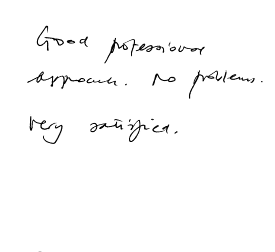 Good professional
approach. No problems.
Very satisfied.